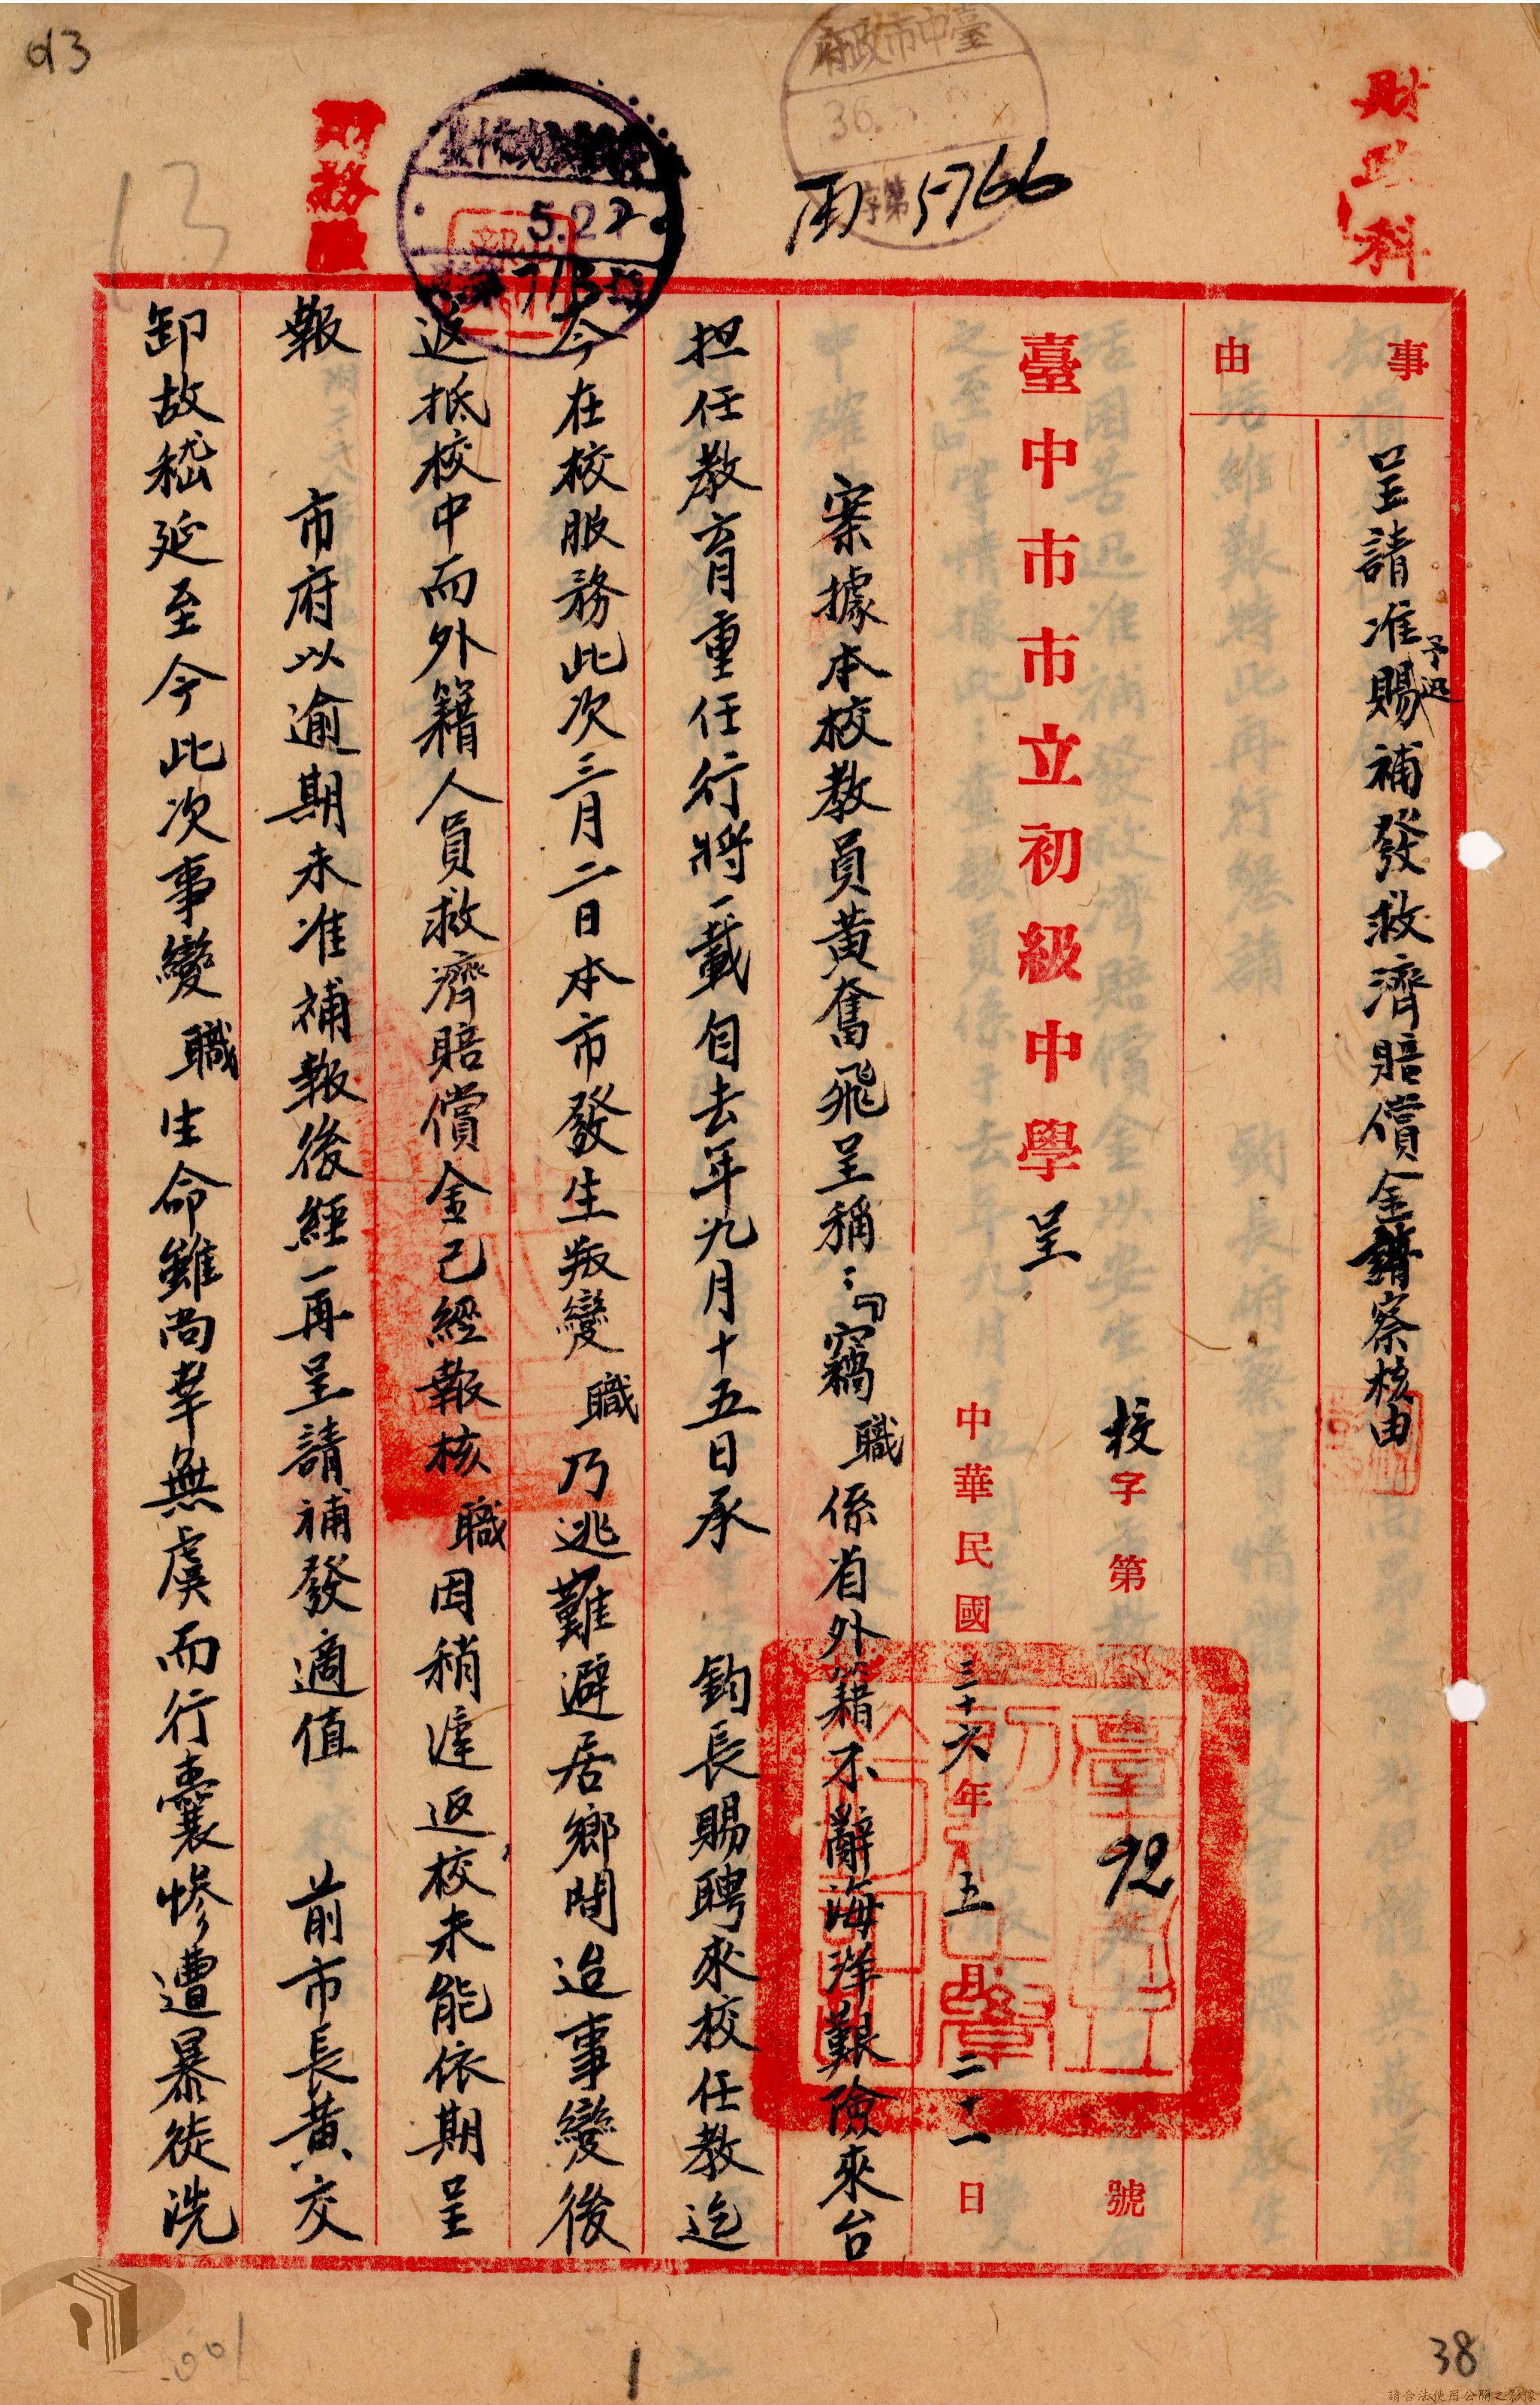 財政科
臺中市政府
36.
字第
丙 5766
5.22
713
財務股
93
13
事由
呈請准予迅補發救濟賠償金請察核由
臺中市市立初級中學呈
校字第72號
中華民國三十六年五月二十一日
案據本校教員黃奮飛呈稱：『竊職係省外籍不辭海洋艱險來台
担任教育重任行將一載自去年九月十五日承 鈞長賜聘來校任教迄
今在校服務此次三月二日本市發生叛變職乃逃難避居鄉間迨事變後
返抵校中而外籍人員救濟賠償金已經報核職因稍遲返校未能依期呈
報 市府以逾期未准補報後經一再呈請補發適值 前市長黃交
卸故嵇延至今此次事變職生命雖尚幸無虞而行囊慘遭暴徒洗
1
38
請合法使用公開之影像